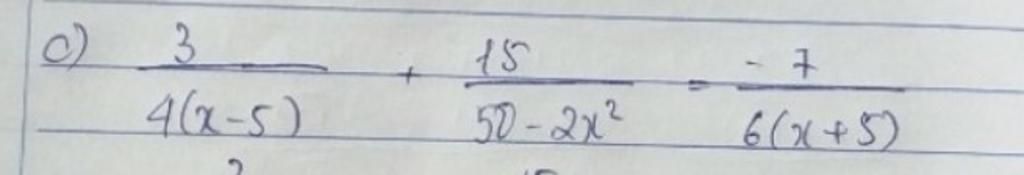 c) 3/(4(x-5)) + 15/(50-2x²) = -7/(6(x+5))